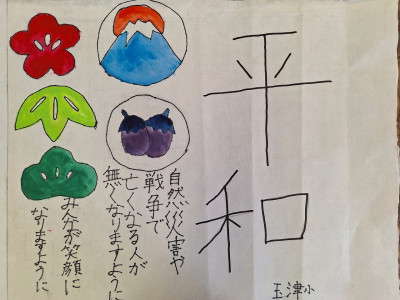 平和
自然災害や
戦争で
亡くなる人が
無くなりますように
みんなが笑顔に
なりますように
玉津小